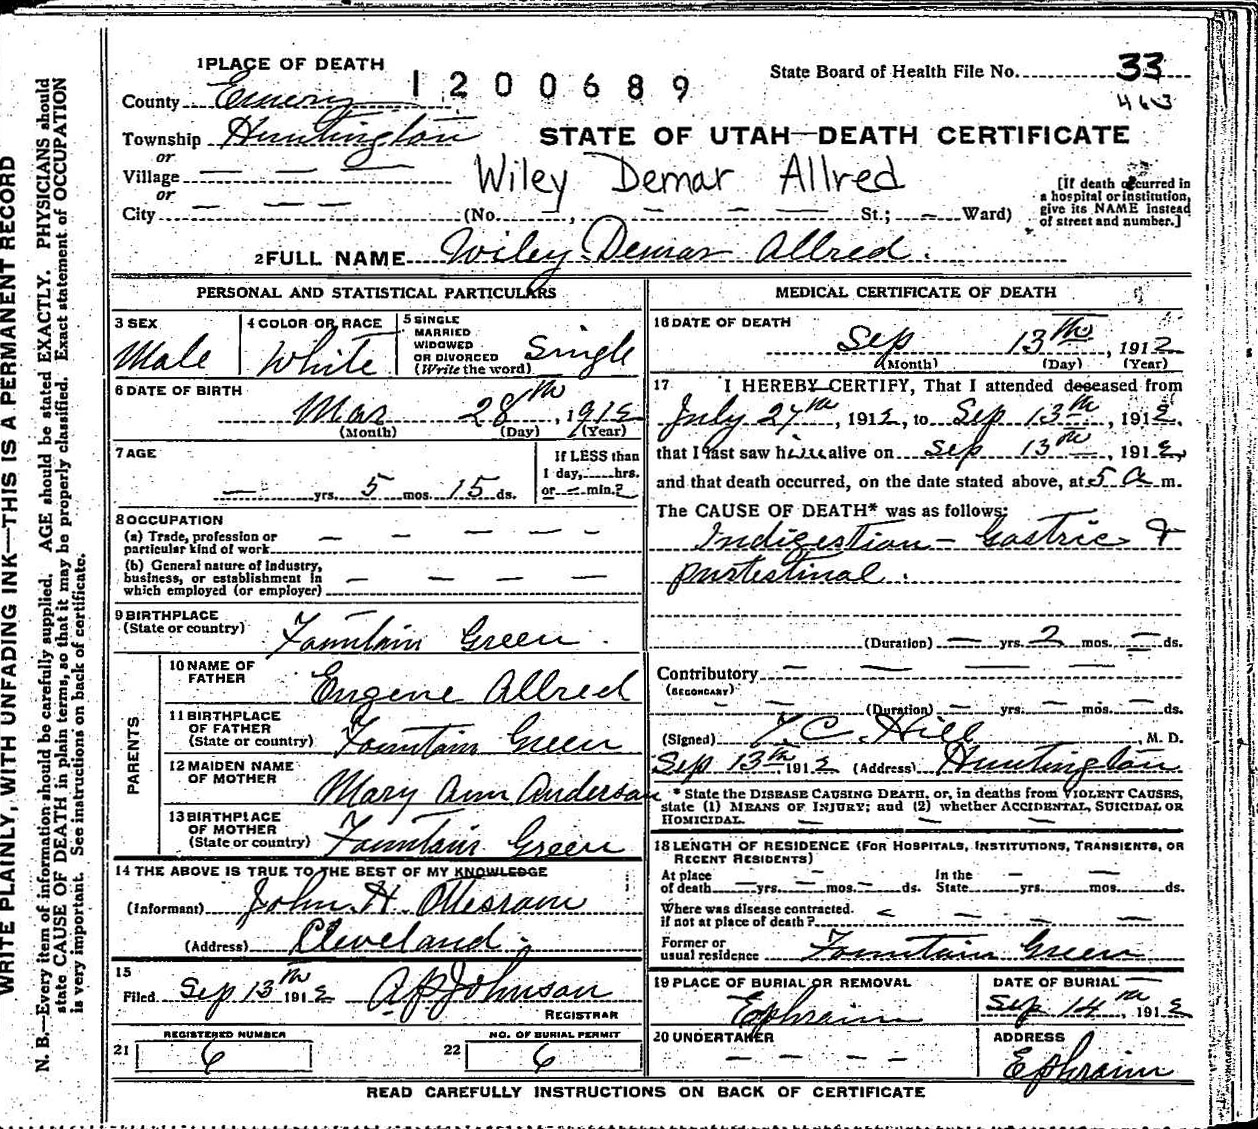 WRITE PLAINLY, WITH UNFADING INK—THIS IS A PERMANENT RECORD
N. B.—Every item of information should be carefully supplied. AGE should be stated EXACTLY. PHYSICIANS should
state CAUSE OF DEATH in plain terms, so that it may be properly classified. Exact statement of OCCUPATION
is very important. See instructions on back of certificate.
1 PLACE OF DEATH
1200689
State Board of Health File No. 33
463
County Emery
Township Huntington
STATE OF UTAH—DEATH CERTIFICATE
or
Village — — —
Wiley Demar Allred
or
City — — — (No. —, — — — St.; — Ward)
[If death occurred in
a hospital or institution,
give its NAME instead
of street and number.]
2 FULL NAME Wiley Demar Allred.
PERSONAL AND STATISTICAL PARTICULARS
3 SEX
Male
4 COLOR OR RACE
White
5 SINGLE
MARRIED
WIDOWED
OR DIVORCED
(Write the word)
Single
6 DATE OF BIRTH
Mar 28th, 1912
(Month) (Day) (Year)
7 AGE
— yrs. 5 mos. 15 ds.
If LESS than
1 day, hrs.
or — min.?
8 OCCUPATION
(a) Trade, profession or
particular kind of work — — — — —
(b) General nature of industry,
business, or establishment in
which employed (or employer) — — — —
9 BIRTHPLACE
(State or country) Fountain Green.
PARENTS
10 NAME OF
FATHER
Eugene Allred
11 BIRTHPLACE
OF FATHER
(State or country) Fountain Green
12 MAIDEN NAME
OF MOTHER
Mary Ann Anderson
13 BIRTHPLACE
OF MOTHER
(State or country) Fountain Green
14 THE ABOVE IS TRUE TO THE BEST OF MY KNOWLEDGE
(Informant) John H.
(Address) Cleveland
15
Filed Sep 13th 1912 A P Johnson
REGISTRAR
REGISTERED NUMBER
21 6
NO. OF BURIAL PERMIT
22 6
MEDICAL CERTIFICATE OF DEATH
16 DATE OF DEATH
Sep 13th, 1912
(Month) (Day) (Year)
17 I HEREBY CERTIFY, That I attended deceased from
July 27th, 1912, to Sep 13th, 1912,
that I last saw him alive on Sep 13th, 1912,
and that death occurred, on the date stated above, at 5 a m.
The CAUSE OF DEATH* was as follows:
Indigestion — Gastric &
Intestinal.
(Duration) — yrs. 2 mos. — ds.
Contributory — — — —
(SECONDARY)
(Duration) — yrs. — mos. — ds.
(Signed) T. C. Hill M. D.
Sep 13th, 1912 (Address) Huntington
* State the DISEASE CAUSING DEATH, or, in deaths from VIOLENT CAUSES,
state (1) MEANS OF INJURY; and (2) whether ACCIDENTAL, SUICIDAL OR
HOMICIDAL.
18 LENGTH OF RESIDENCE (FOR HOSPITALS, INSTITUTIONS, TRANSIENTS, OR
RECENT RESIDENTS)
At place
of death — yrs. — mos. — ds.
In the
State — yrs. — mos. — ds.
Where was disease contracted
if not at place of death? — — — —
Former or
usual residence Fountain Green
19 PLACE OF BURIAL OR REMOVAL
Ephraim
DATE OF BURIAL
Sep 14th, 1912
20 UNDERTAKER
— — — —
ADDRESS
Ephraim
READ CAREFULLY INSTRUCTIONS ON BACK OF CERTIFICATE